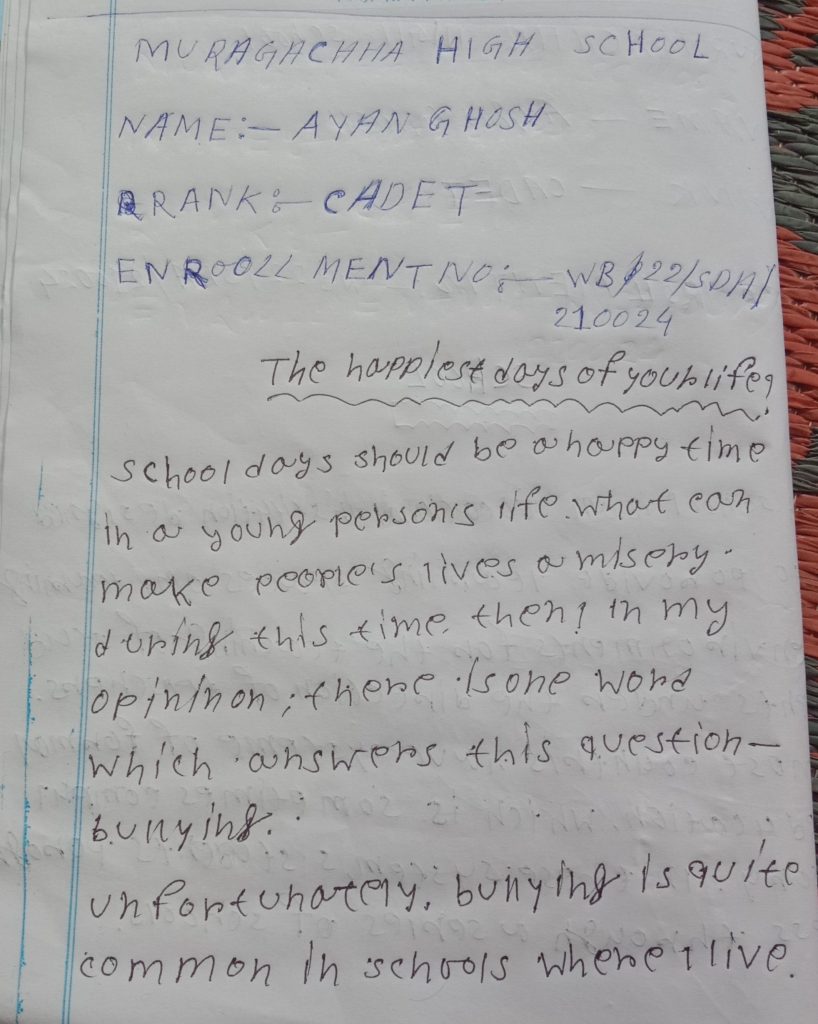 MURAGACHHA HIGH SCHOOL
NAME:- AYAN GHOSH
RANK:- CADET
ENROOLLMENT NO:- WB/22/SDA/
210024
The happiest days of your life?
school days should be a happy time
in a young person's life. what can
make people's lives a misery.
during this time, then? in my
opininon; there is one word
which answers this question-
bullying.
unfortunately, bullying is quite
common in schools where I live.